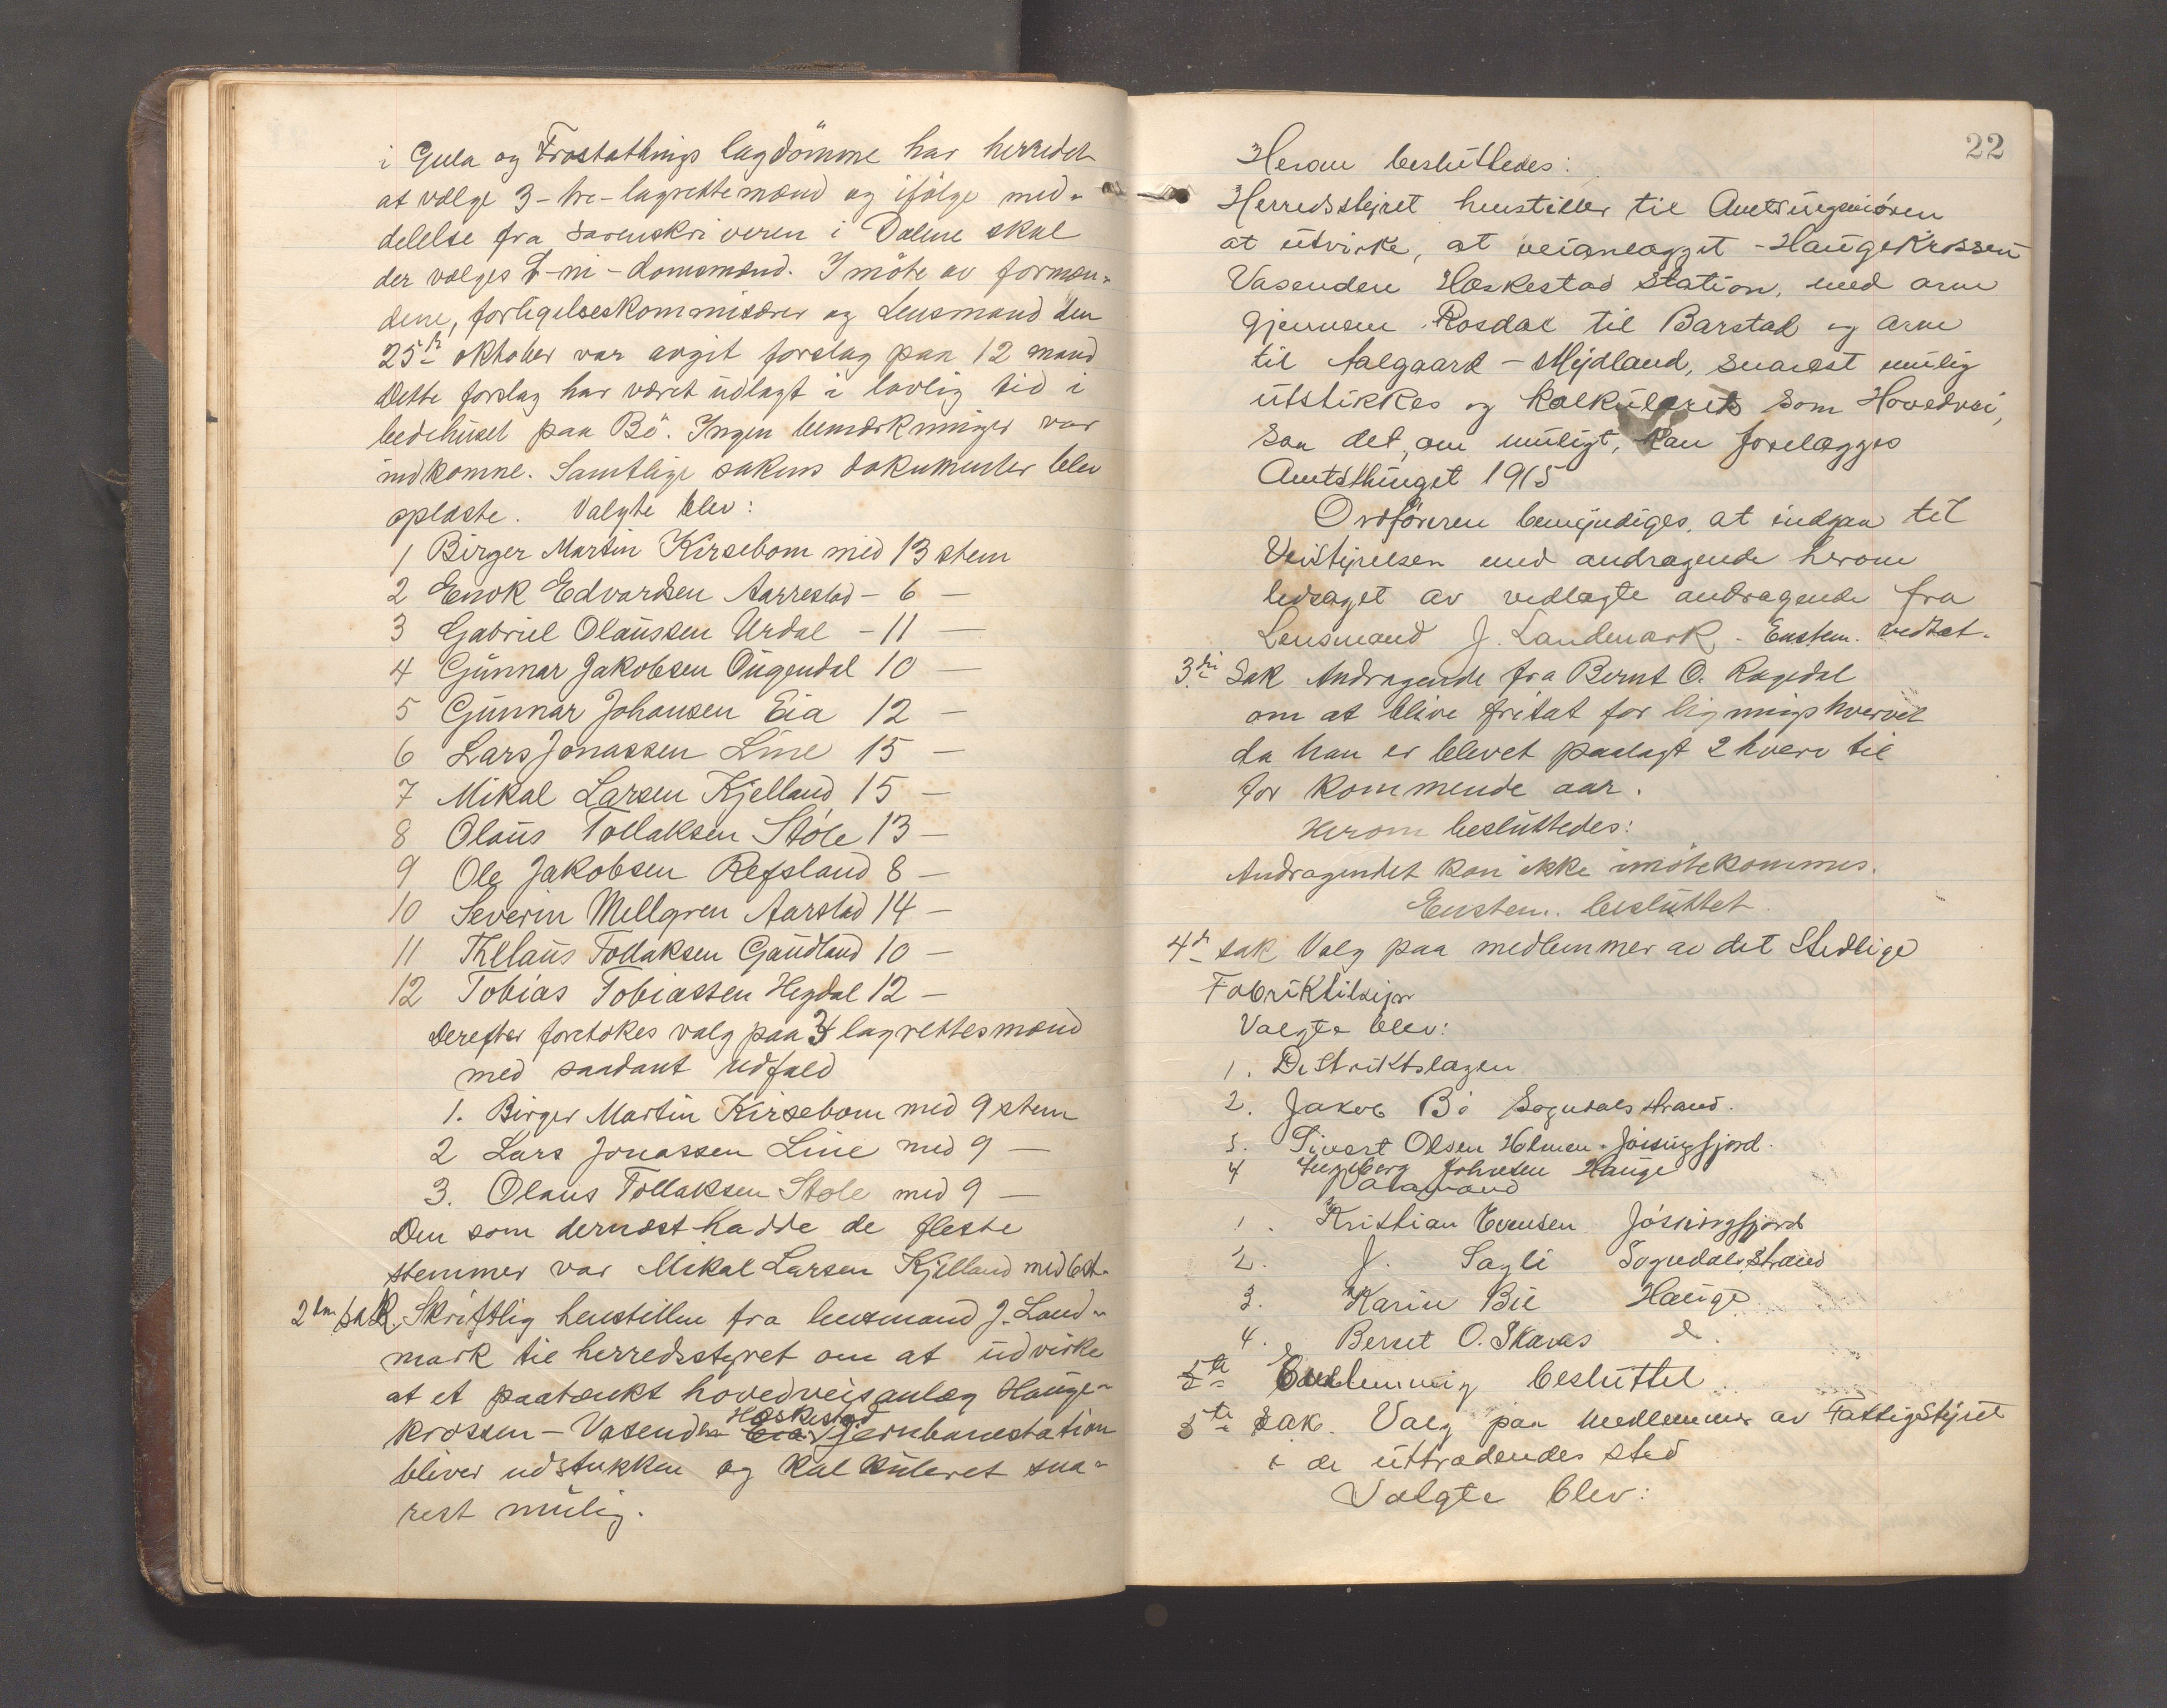 i Gula og Frostathings lagdömme har herredet
at vælge 3-tre-lagrettemænd og ifölge med-
delelse fra Sorenskriveren i Dalene skal
der vælges -ni-domsmænd. I möte av formæn-
dene, forligelseskommisærer og Lensmand den
25de oktober var avgit forslag paa 12 mand
Dette forslag har været udlagt i lovlig tid i
bedehuset paa Bö. Ingen bemærkninger var
indkomne. Samtlige sakens dokumenter blev
oplæste. Valgte blev:
1 Birger Martin Kirsebom med 13 stem
2 Enok Edvardsen Aarrestad - 6 —
3 Gabriel Olaussen Urdal - 11 —
4 Gunnar Jakobsen Ougendal 10 —
5 Gunnar Johansen Eia 12 —
6 Lars Jonassen Line 15 —
7 Mikal Larsen Kjelland 15 —
8 Olaus Tollaksen Stöle 13 —
9 Ole Jakobsen Refsland 8 —
10 Severin Mellgren Aarstad 14 —
11 Tollaksen Gaudland 10 —
12 Tobias Tobiassen Hegdal 12 —
Derefter foretokes valg paa 3 lagrettesmænd
med saadant udfald
1. Birger Martin Kirsebom med 9 stem
2 Lars Jonassen Line med 9 —
3. Olaus Tollaksen Stöle med 9 —
Den som dernæst hadde de fleste
stemmer var Mikal Larsen Kjelland med 6 st.
2den sak. Skriftlig henstillen fra lensmand J. Land-
mark til herredsstyret om at udvirke
at et paatænkt hovedveisanlæg Hauge-
krossen - Vasenden Heskestad jernbanestation
bliver udstukken og kalkuleret sna-
rest mulig.
22
Herom besluttedes:
Herredsstyret henstiller til Amtsingeniören
at utvirke, at veianlægget - Haugekrossen
Vasenden Heskestad Station, med arm
gjennem Rosdal til Barstad og arm
til Aalgaard - Mydland, snarest mulig
utstikkes og kalkuleres som Hovedvei,
saa det, om muligt, kan forelægges
Amtsthinget 1915
Ordföreren bemyndiges, at indgaa til
Veistyrelsen med andragende herom
ledsaget av vedlagte andragende fra
Lensmand J. Landmark. Enstem. vedtat.
3die Sak Andragende fra Bernt O. Rægedal
om at blive fritat for ligningshvervet
da han er blevet paalagt 2 hverv til
for kommende aar.
Herom besluttedes:
Andragendet kan ikke imötekommes.
Enstem. besluttet.
4de sak Valg paa medlemmer av det Stedlige
Fabriktilsyn
Valgte blev:
1. Distriktslægen
2. Jakob Bö Sogndalsstrand.
3. Sivert Olsen Holmen Jössingfjord.
4 Ingeborg Johnsen Hauge
Varamænd
1. Kristian Evensen Jössingfjord
2. J. Sagli Sogndalsstrand
3. Karin Bie Hauge
4. Bernt O. Skaraas do.
Enstemmig besluttet
5te Sak. Valg paa medlemmer av Fattigstyret
i de uttrædendes sted
Valgte blev: